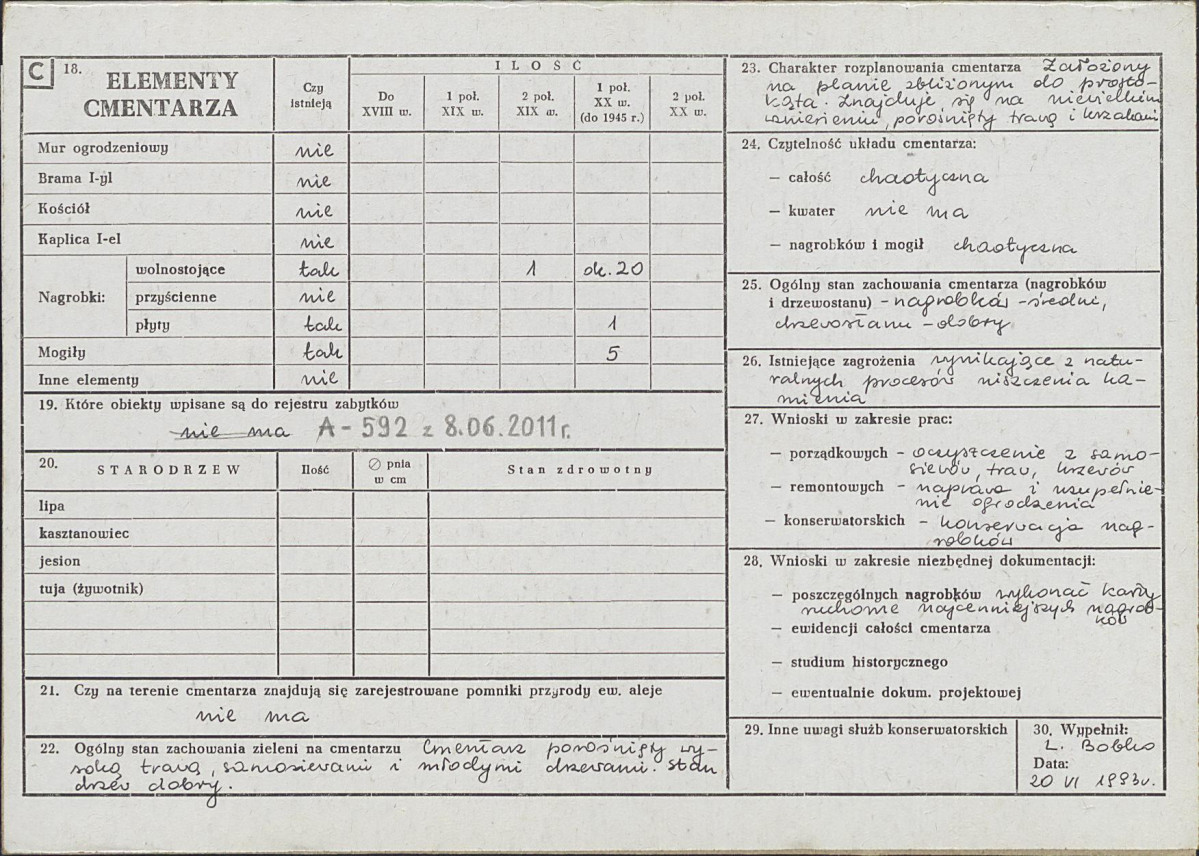 C 18. ELEMENTY CMENTARZA
Czy istnieją
ILOŚĆ
Do XVIII w.
1 poł. XIX w.
2 poł. XIX w.
1 poł. XX w. (do 1945 r.)
2 poł. XX w.
Mur ogrodzeniowy nie
Brama I-yl nie
Kościół nie
Kaplica I-el nie
Nagrobki: wolnostojące tak 1 ok. 20
przyścienne nie
płyty tak 1
Mogiły tak 5
Inne elementy nie
19. Które obiekty wpisane są do rejestru zabytków
nie ma A-592 z 8.06.2011r.
20. STARODRZEW Ilość ∅ pnia w cm Stan zdrowotny
lipa
kasztanowiec
jesion
tuja (żywotnik)
21. Czy na terenie cmentarza znajdują się zarejestrowane pomniki przyrody ew. aleje
nie ma
22. Ogólny stan zachowania zieleni na cmentarzu Cmentarz porośnięty wy-
soką trawą, samosiewami i młodymi drzewami. Stan
drzew dobry.
23. Charakter rozplanowania cmentarza Założony
na planie zbliżonym do prosto-
kąta. Znajduje się na niewielkim
wniesieniu, porośnięty trawą i krzakami
24. Czytelność układu cmentarza:
— całość chaotyczna
— kwater nie ma
— nagrobków i mogił chaotyczna
25. Ogólny stan zachowania cmentarza (nagrobków
i drzewostanu) - nagrobków - średni,
drzewostanu - dobry
26. Istniejące zagrożenia wynikające z natu-
ralnych procesów niszczenia ka-
mienia
27. Wnioski w zakresie prac:
— porządkowych - oczyszczenie z samo-
siewów, traw, krzewów
— remontowych - naprawa i uzupełnie-
nie ogrodzenia
— konserwatorskich - konserwacja nag-
robków
28. Wnioski w zakresie niezbędnej dokumentacji:
— poszczególnych nagrobków wykonać karty
ruchome najcenniejszych nagrob-
ków
— ewidencji całości cmentarza
— studium historycznego
— ewentualnie dokum. projektowej
29. Inne uwagi służb konserwatorskich
30. Wypełnił:
L. Bobko
Data:
20 VI 1993r.